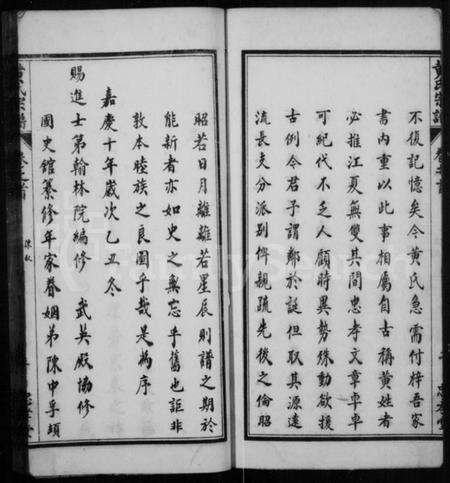 不復記憶矣今黃氏急需付梓吾家
書內重以此事相屬自古稱黃姓者
必推江夏無雙其間忠孝文章卓卓
可紀代不乏人顧時異勢殊動欲援
古例今君子謂鄰於誕但取其源遠
流長支分派別俾親疏先後之倫昭
昭若日月離離若星辰則譜之期於
能新者亦如史之無忘乎舊也詎非
敦本睦族之良圖乎哉是為序
嘉慶十年歲次乙丑冬
賜進士第翰林院編修 武英殿協修
國史館纂修年家眷姻弟陳中孚頓
黃氏宗譜
卷之首
陳敘